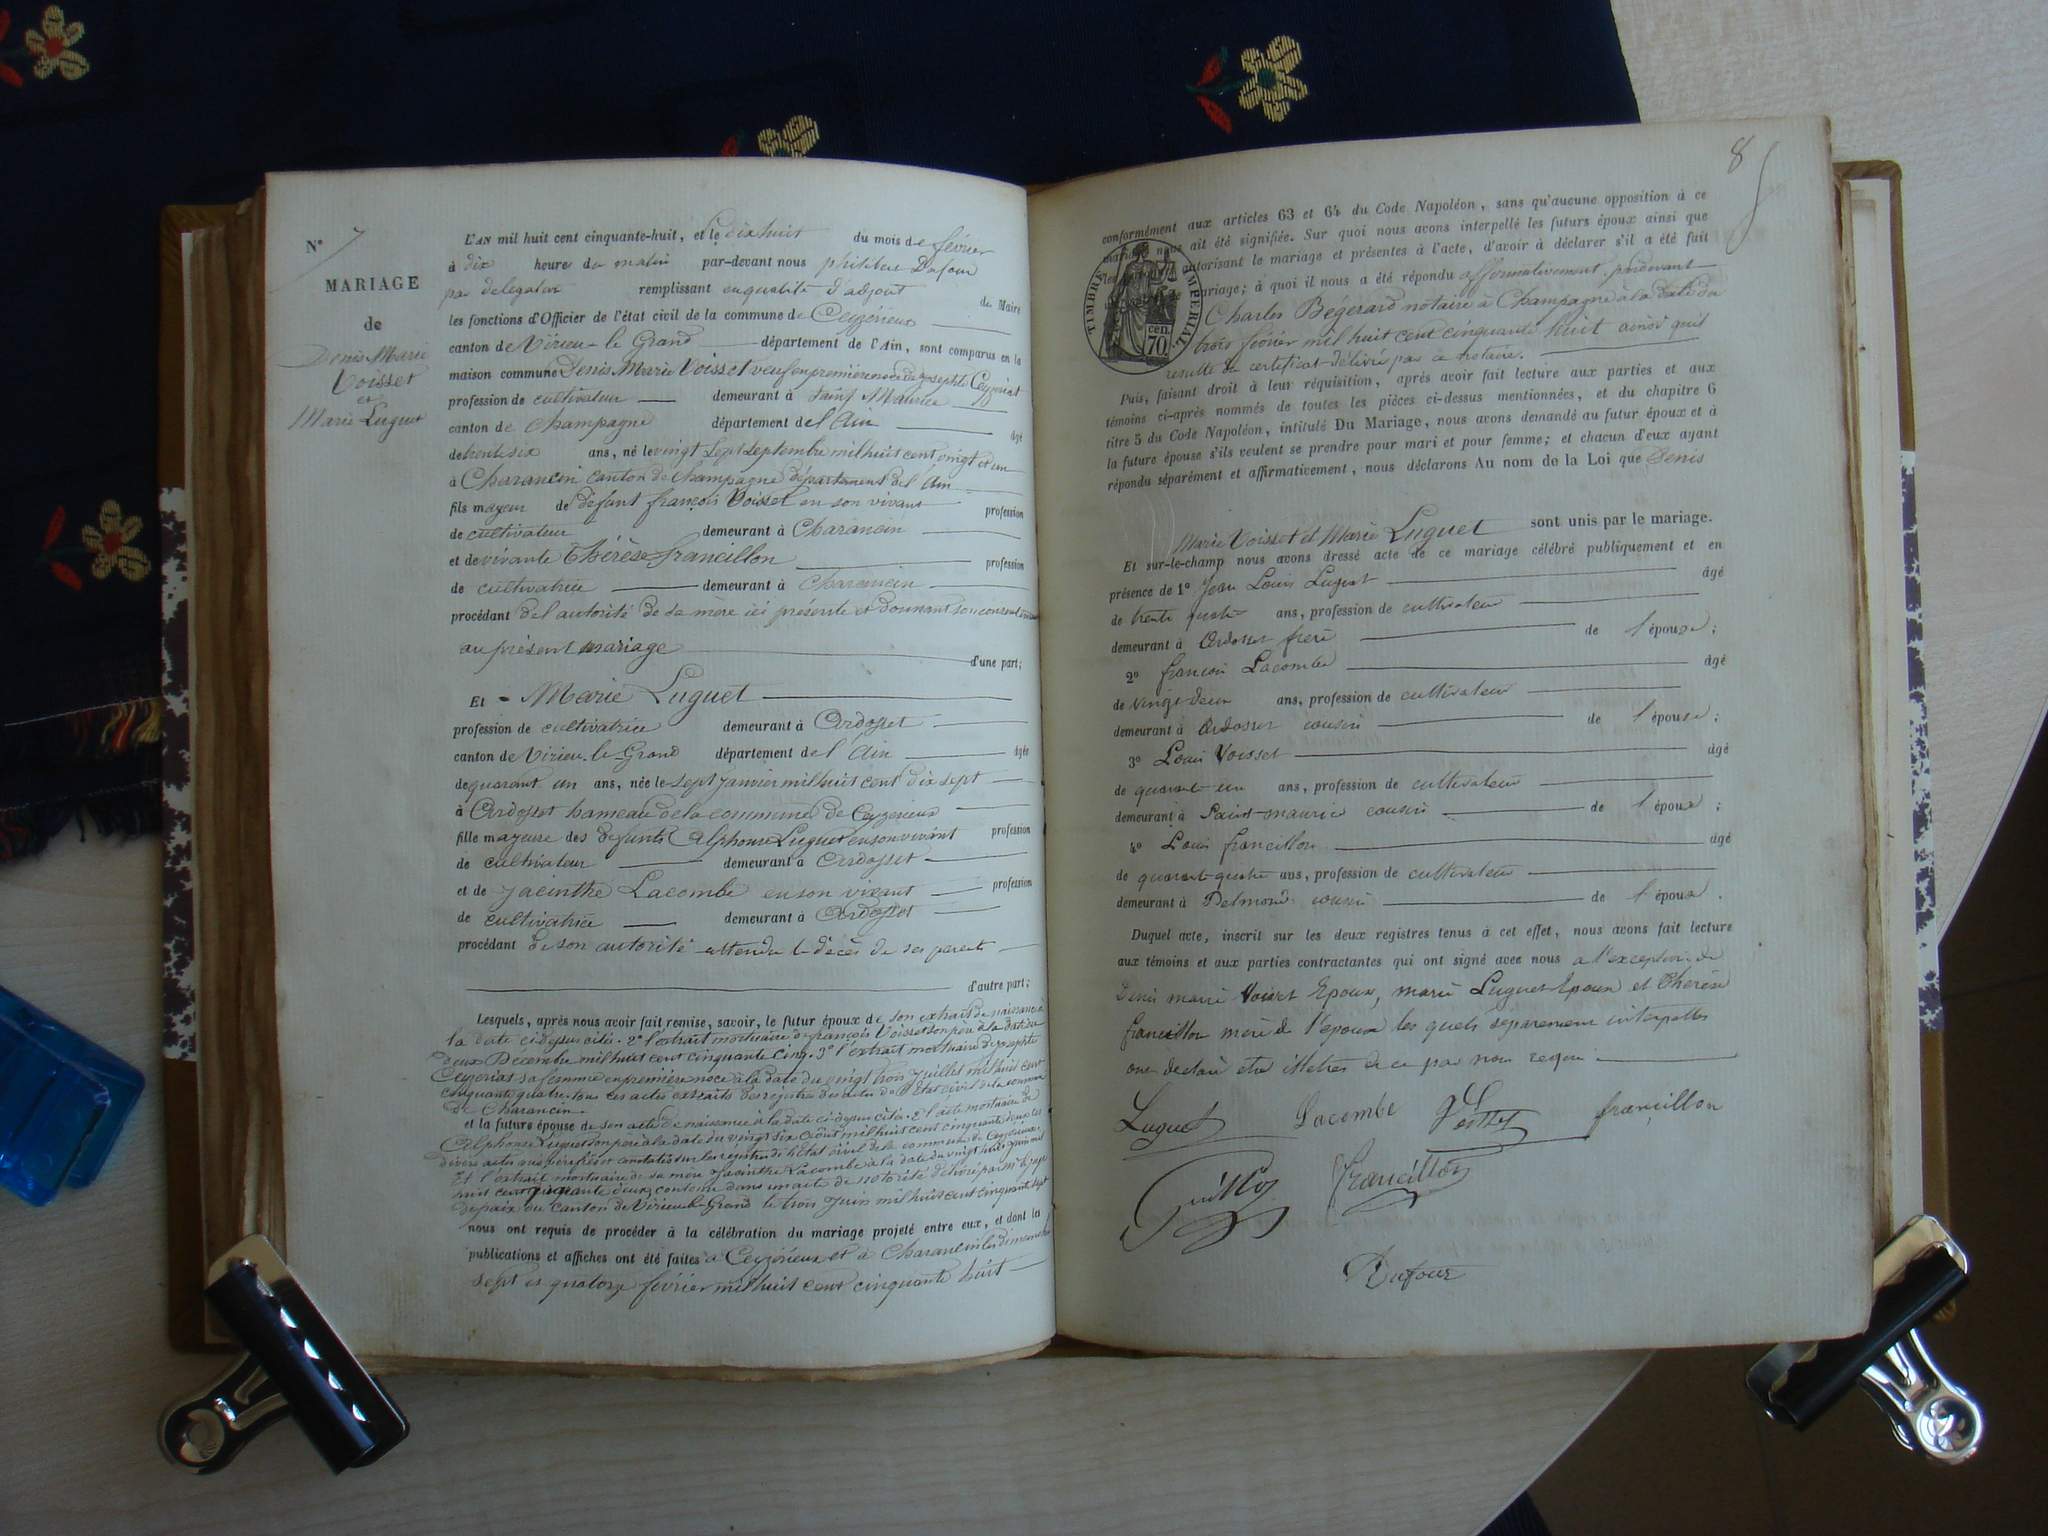 N° 7
MARIAGE
de
Denis Marie
Voisset
et
Marie Luguet
L'AN mil huit cent cinquante-huit, et le dix huit du mois de février
à dix heures du matin par-devant nous philibert Dufour
par délégation remplissant en qualité d'adjoint de Maire
les fonctions d'Officier de l'état civil de la commune de Ceyzérieux
canton de Virieu-le Grand département de l'Ain, sont comparus en la
maison commune Denis Marie Voisset veuf en premières noces de josephte Ceyzeriat
profession de cultivateur demeurant à Saint Maurice
canton de Champagne département de l'Ain âgé
de trente six ans, né le vingt Sept Septembre mil huit cent vingt et un
à Charancin canton de Champagne département de l'Ain
fils mayeur de défunt françois Voisset en son vivant profession
de cultivateur demeurant à Charancin
et de vivante Thérèse francillon profession
de cultivatrice demeurant à Charancin
procédant de l'autorité de sa mère ici présente et donnant son consentement
au présent mariage d'une part;
Et Marie Luguet
profession de cultivatrice demeurant à Ardosset
canton de Virieu-le-Grand département de l'Ain âgée
de quarant un ans, née le sept janvier mil huit cent dix sept
à Ardosset hameau de la commune de Ceyzerieux
fille mayeure des défunts Alphonse Luguet en son vivant profession
de cultivateur demeurant à Ardosset
et de jacinthe Lacombe en son vivant profession
de cultivatrice demeurant à Ardosset
procédant de son autorité attendu le décès de ses parents
d'autre part;
Lesquels, après nous avoir fait remise, savoir, le futur époux de son extrait de naissance à
la date ci-dessus citée. 2° l'extrait mortuaire de françois Voisset son père à la date du
deux Décembre mil huit cent cinquante cinq. 3° l'extrait mortuaire de josephte
Ceyzeriat sa femme en première noce à la date du vingt trois juillet mil huit cent
cinquante quatre. tous ces actes extraits des registres des actes de l'État civil de la commune
de Charancin
et la future épouse de son acte de naissance à la date ci-dessus citée. 2° l'acte mortuaire de
Alphonse Luguet son père à la date du vingt six août mil huit cent cinquante deux les
divers actes que périfrés et constatés sur les registres de l'État civil de la commune de Ceyzérieux.
Et l'extrait mortuaire de sa mère Jacinthe Lacombe à la date du vingt huit juin mil
huit cent cinquante deux contenu dans un acte de notoriété délivré par Mr le juge
de paix du canton de Virieu-le-Grand le trois juin mil huit cent cinquante sept
nous ont requis de procéder à la célébration du mariage projeté entre eux, et dont les
publications et affiches ont été faites à Ceyzérieux et à Charancin les dimanches
sept et quatorze février mil huit cent cinquante huit
8
conformément aux articles 63 et 64 du Code Napoléon, sans qu'aucune opposition à ce
mariage nous ait été signifiée. Sur quoi nous avons interpellé les futurs époux ainsi que
les autorisant le mariage et présentes à l'acte, d'avoir à déclarer s'il a été fait
mariage; à quoi il nous a été répondu affirmativement pardevant
Charles Bégerard notaire à Champagne à la date du
trois février mil huit cent cinquante huit ainsi qu'il
resulte du certificat délivré par ce notaire.
TIMBRE IMPÉRIAL
70 cen.
Puis, faisant droit à leur réquisition, après avoir fait lecture aux parties et aux
témoins ci-après nommés de toutes les pièces ci-dessus mentionnées, et du chapitre 6
titre 5 du Code Napoléon, intitulé Du Mariage, nous avons demandé au futur époux et à
la future épouse s'ils veulent se prendre pour mari et pour femme; et chacun d'eux ayant
répondu séparément et affirmativement, nous déclarons Au nom de la Loi que Denis
Marie Voisset et Marie Luguet sont unis par le mariage.
Et sur-le-champ nous avons dressé acte de ce mariage célébré publiquement et en
présence de 1° Jean Louis Luguet âgé
de trente quatre ans, profession de cultivateur
demeurant à Ardosset frère de l'épouse;
2° francois Lacombe âgé
de vingt deux ans, profession de cultivateur
demeurant à Ardosset cousin de l'épouse;
3° Louis Voisset âgé
de quarante un ans, profession de cultivateur
demeurant à Saint-maurice cousin de l'époux;
4° Louis francillon âgé
de quarante quatre ans, profession de cultivateur
demeurant à Belmond cousin de l'époux.
Duquel acte, inscrit sur les deux registres tenus à cet effet, nous avons fait lecture
aux témoins et aux parties contractantes qui ont signé avec nous a l'exception de
Denis marie Voisset Epoux, marie Luguet Epoux et Thérèse
francillon mère de l'époux les quels séparément interpellés
ont déclaré etre illetrés de ce par nous requis
Luguet Lacombe Voisset francillon
Francillon
Dufour